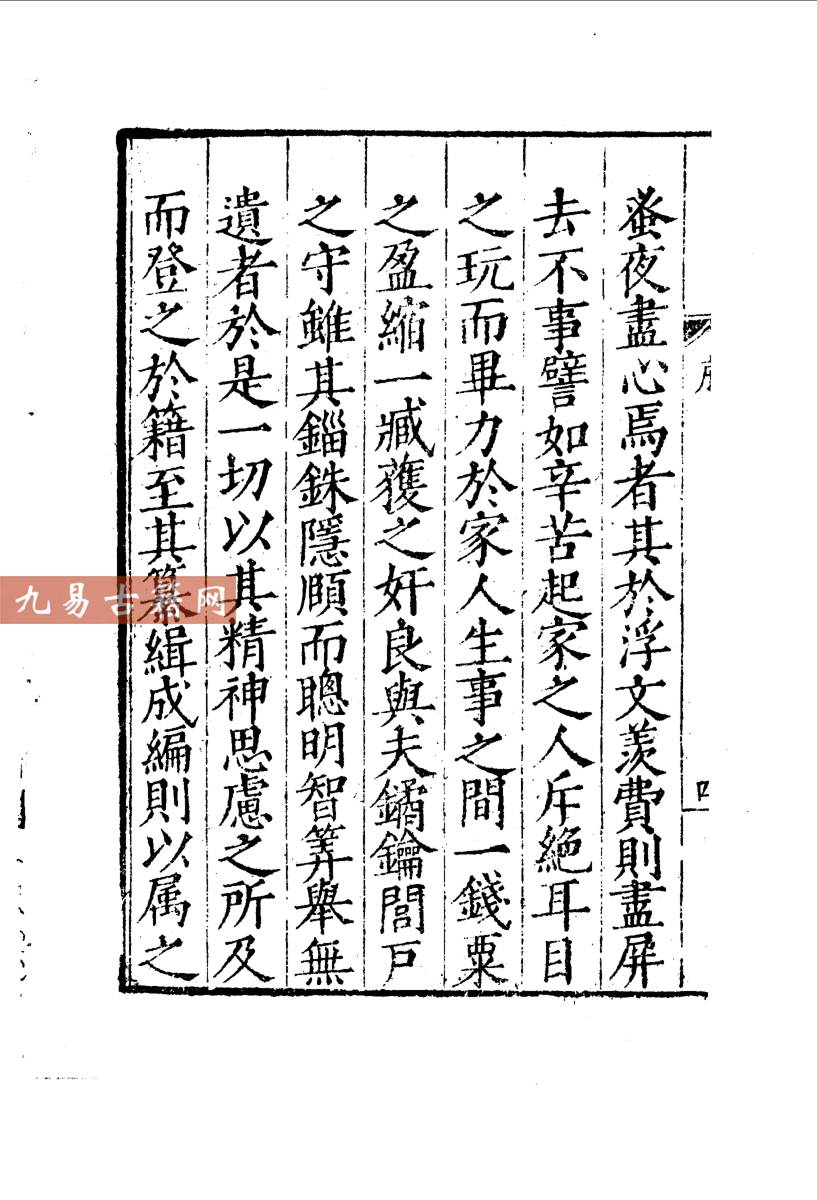 蚤夜盡心焉者其於浮文羨費則盡屏
去不事譬如辛苦起家之人斥絕耳目
之玩而畢力於家人生事之間一錢粟
之盈縮一臧獲之奸良與夫鐍鑰閭戶
之守雖其錙銖隱頤而聰明智筭舉無
遺者於是一切以其精神思慮之所及
而登之於籍至其纂緝成編則以属之
九易古籍网